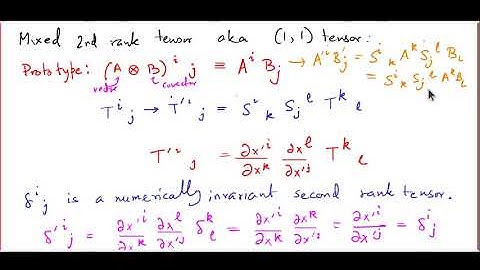 Mixed 2nd rank tensor aka (1,1) tensor:
Prototype: (A ⊗ B)^i_j ≡ A^i B_j → A'^i B'_j = S^i_k A^k S_j^l B_l
vector covector = S^i_k S_j^l A^k B_l
T^i_j → T'^i_j = S^i_k S_j^l T^k_l
T'^i_j = ∂x'^i/∂x^k ∂x^l/∂x'^j T^k_l
δ^i_j is a numerically invariant second rank tensor.
δ'^i_j = ∂x'^i/∂x^k ∂x^l/∂x'^j δ^k_l = ∂x'^i/∂x^k ∂x^k/∂x'^j = ∂x'^i/∂x'^j = δ^i_j